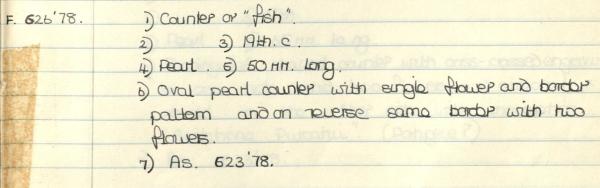 F. 626'78. 1) Counter or "fish".
2) 3) 19th. c.
4) Pearl. 5) 50 mm. long.
6) Oval pearl counter with single flower and border
pattern and on reverse same border with two
flowers.
7) As. 623'78.